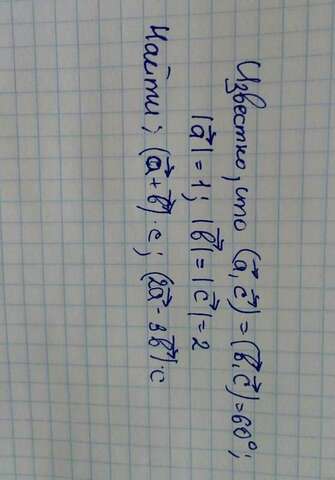 Известно, что (a⃗, c⃗) = (b⃗, c⃗) = 60°;
|a⃗| = 1; |b⃗| = |c⃗| = 2
Найти; (a⃗ + b⃗) · c; (2a⃗ - 3b⃗) · c